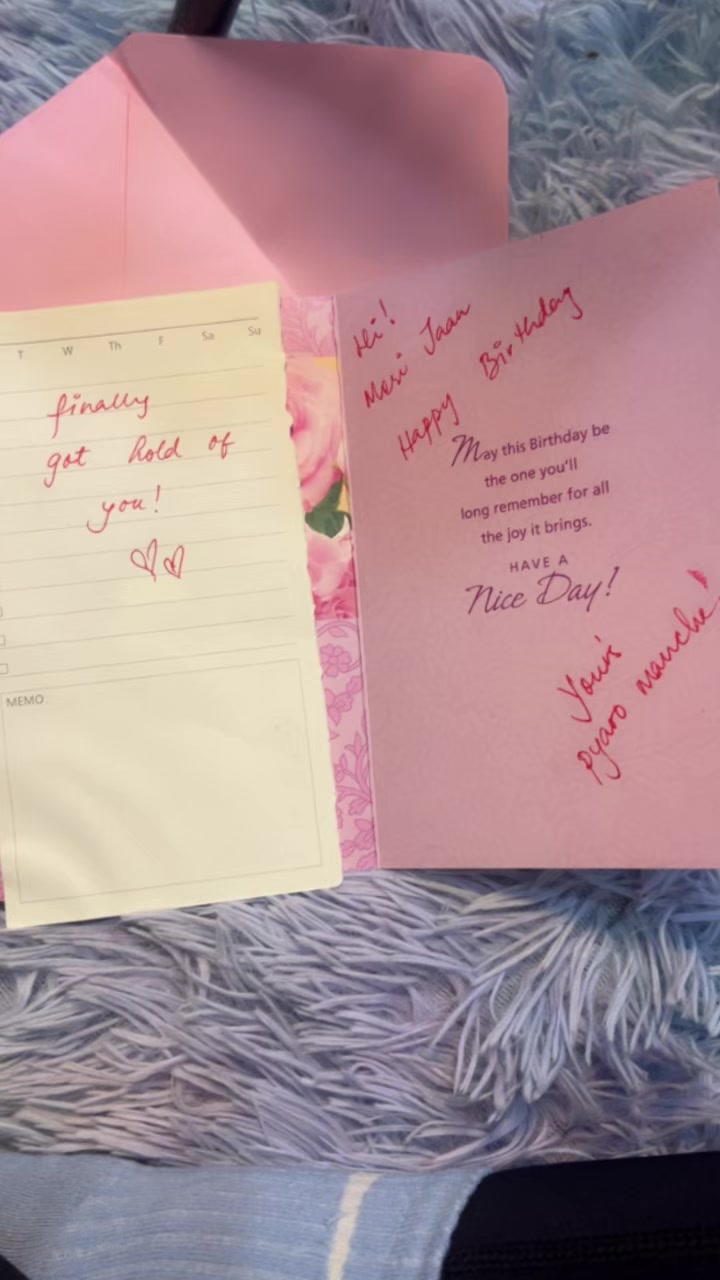 T W Th F Sa Su
finally
got hold of
you!
MEMO
Hi!
Meri Jaan
Happy Birthday
May this Birthday be
the one you'll
long remember for all
the joy it brings.
HAVE A
Nice Day!
Your's
Pyaro manche!